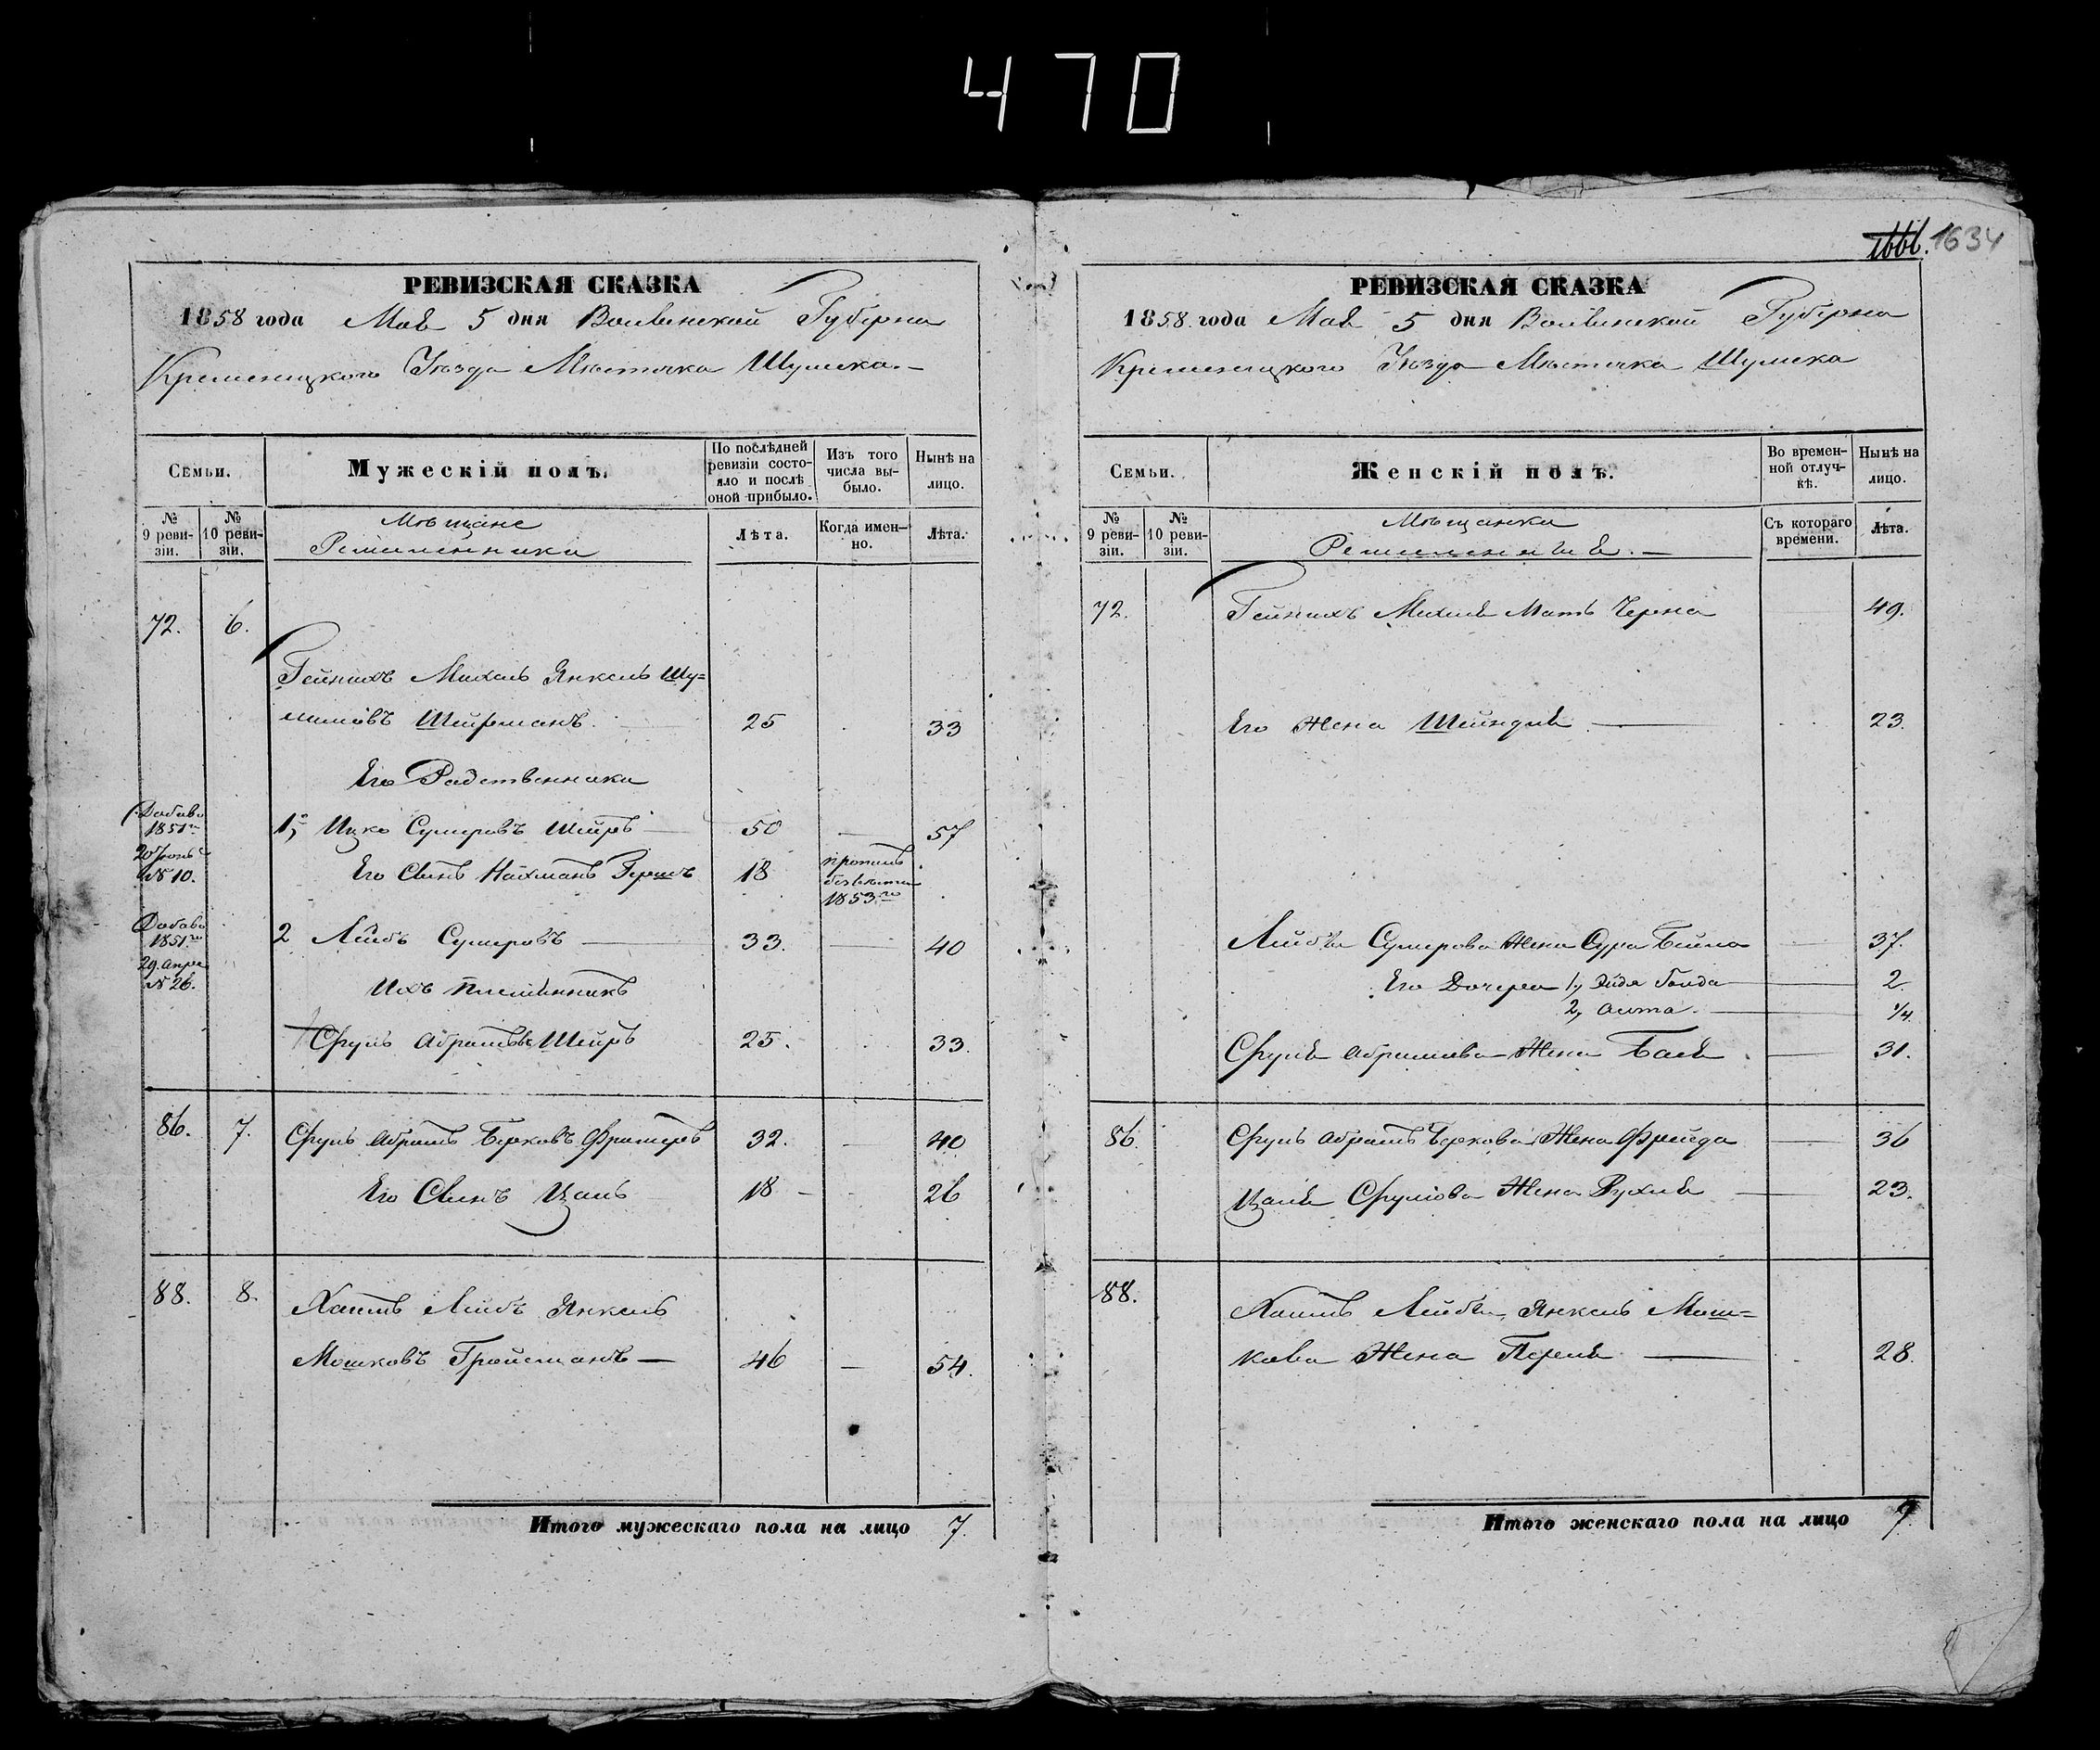 470
1666. 1634
РЕВИЗСКАЯ СКАЗКА
1858 года Мая 5 дня Волынской Губерни
Кременецкого Уезда Местечка Шумска.
Семьи.
Мужескій полъ.
По послѣдней ревизіи состояло и послѣ оной прибыло.
Изъ того числа выбыло.
Нынѣ на лицо.
№ 9 ревизіи.
№ 10 ревизіи.
Мещане
Ремисленники
Лѣта.
Когда именно.
Лѣта.
72. 6.
Гейнихъ Михель Янкель Шу-
лимовъ Шейрманъ 25 33
Его Родственники
Добав. 1851го
20 Іюнь № 10.
1, Ицко Сумеровъ Шейръ 50 — 57
Его Сынъ Нахманъ Гершъ 18 пропалъ безвести 1853го
Добав. 1851го
29. апре № 26.
2 Лейбъ Сумеровъ — 33. — 40
Ихъ племянникъ
Сруль Абрамовъ Шейръ 25. 33.
86. 7. Сруль Абрамъ Берковъ Фрамеръ 32. — 40
Его Сынъ Цаль 18 — 26
88. 8. Хаимъ Лейбъ Янкель
Мошковъ Гройсманъ — 46 — 54.
Итого мужескаго пола на лицо 7.
РЕВИЗСКАЯ СКАЗКА
1858 года Мая 5 дня Волынской Губерни
Кременецкого Уезда Местечка Шумска
Семьи.
Женскій полъ.
Во временной отлучкѣ.
Нынѣ на лицо.
№ 9 ревизіи.
№ 10 ревизіи.
Мещанки
Съ котораго времени.
Лѣта.
72. Гейнихъ Михеля Мать Черна 49.
Его Жена Шейндля — 23.
Лейбы Сумерова Жена Сура Бейла — 37.
Его Дочери 1, Эйдя Голда — 2
2, — 1/4.
Сруля Абрамова Жена Бася — 31.
86. Сруль Абрамъ Беркова Жена Фрейда — 36
Цаля Срулова Жена Рухля — 23.
88. Хаимъ Лейбы Янкель Мош-
кова Жена Перля — 28.
Итого женскаго пола на лицо 9